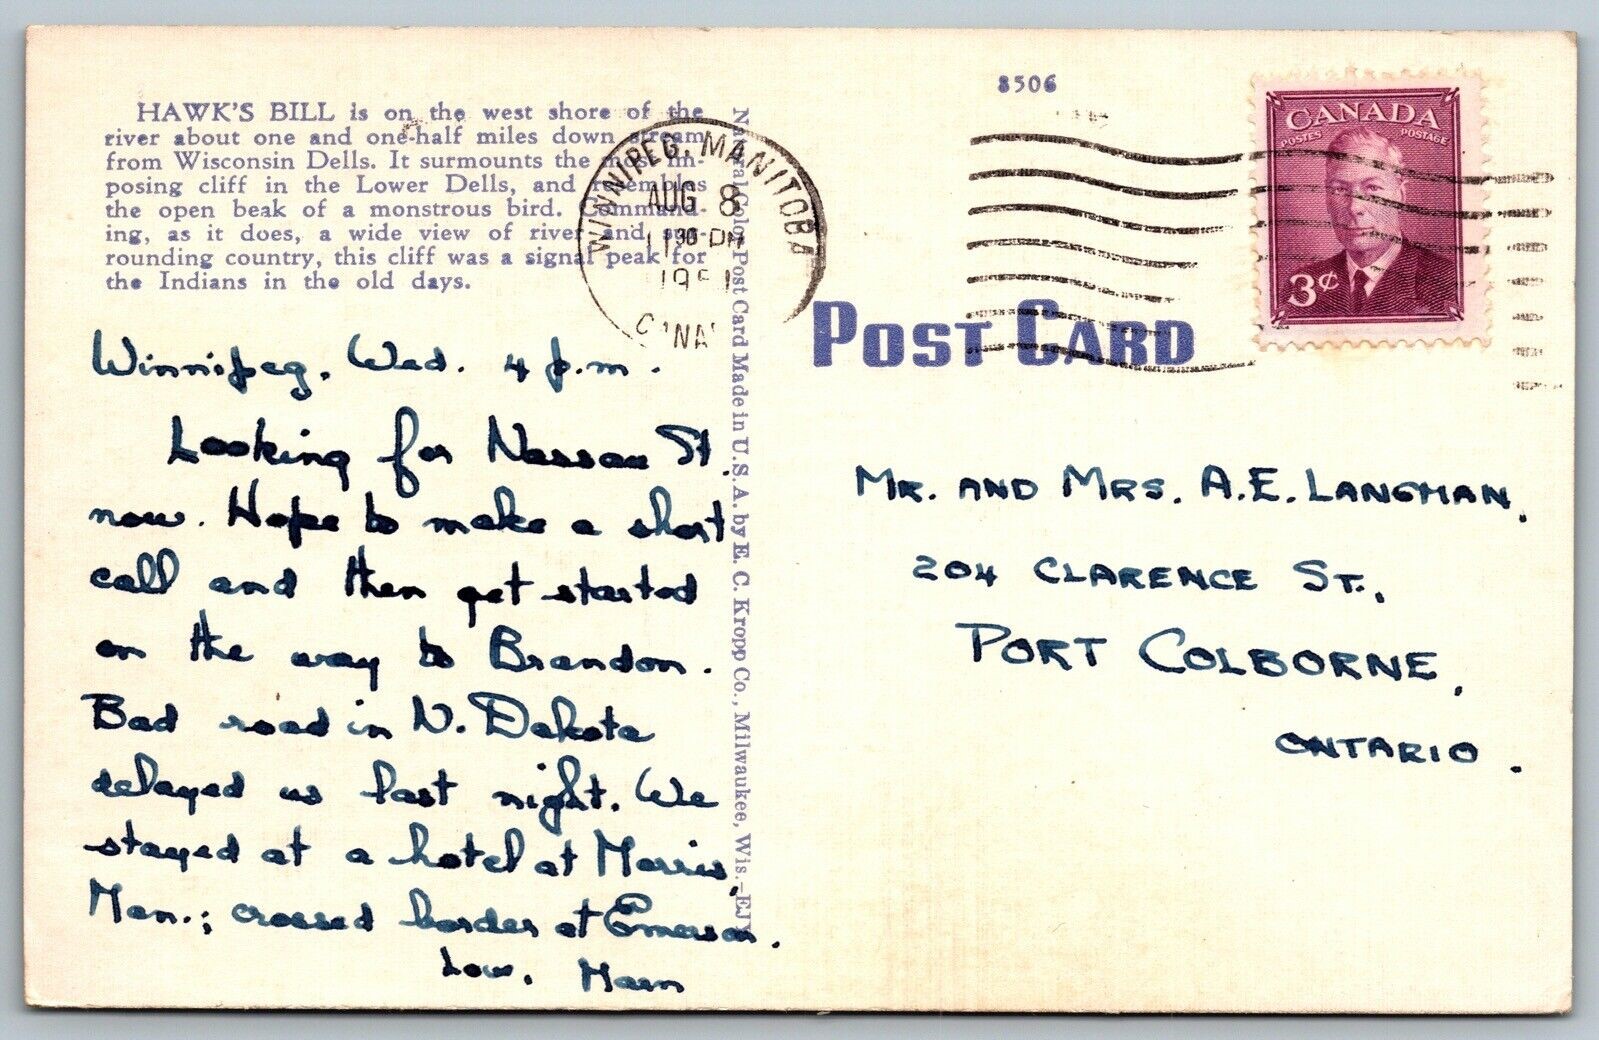 HAWK'S BILL is on the west shore of the
river about one and one-half miles down stream
from Wisconsin Dells. It surmounts the most im-
posing cliff in the Lower Dells, and resembles
the open beak of a monstrous bird. Command-
ing, as it does, a wide view of river and sur-
rounding country, this cliff was a signal peak for
the Indians in the old days.
Winnipeg, Wed. 4 p.m.
Looking for Nassau St.
now. Hope to make a short
call and then get started
on the way to Brandon.
Bad road in N. Dakota
delayed us last night. We
stayed at a hotel at Morris,
Man.; crossed border at Emerson.
Love. 
Natural Color Post Card Made in U.S.A. by E. C. Kropp Co., Milwaukee, Wis.-EJY
WINNIPEG, MANITOBA
AUG 8
11 30 PM
1951
CANA
8506
POST CARD
CANADA
POSTES POSTAGE
3¢
MR. AND MRS. A.E. LANGMAN,
204 CLARENCE ST.,
PORT COLBORNE,
ONTARIO.